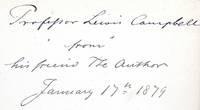 Professor Lewis Campbell
"from"
his friend The Author
January 17th 1879